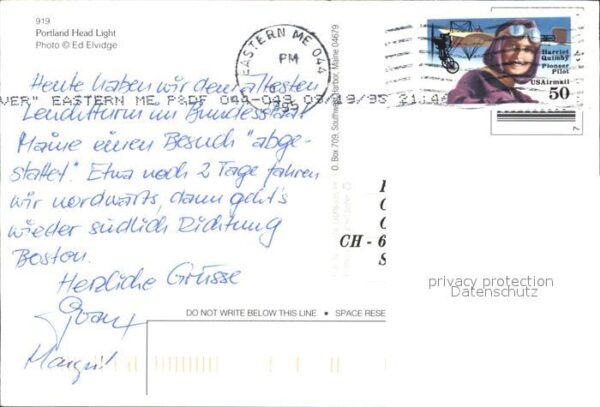 919
Portland Head Light
Photo © Ed Elvidge
Heute haben wir den ältesten
Leuchtturm im Bundesstaat
Maine einen Besuch "abge-
stattet". Etwa noch 2 Tage fahren
wir nordwärts, dann geht's
wieder südlich Richtung
Boston.
Herzliche Grüsse
EASTERN ME 044
PM
1995
VER" EASTERN ME P&DF 044-049 09/19/95 21:4
O. Box 709, Southwest Harbor, Maine 04679
Harriet
Quimby
Pioneer
Pilot
USAirmail
50
7
CH - 6
S
privacy protection
Datenschutz
DO NOT WRITE BELOW THIS LINE • SPACE RESE